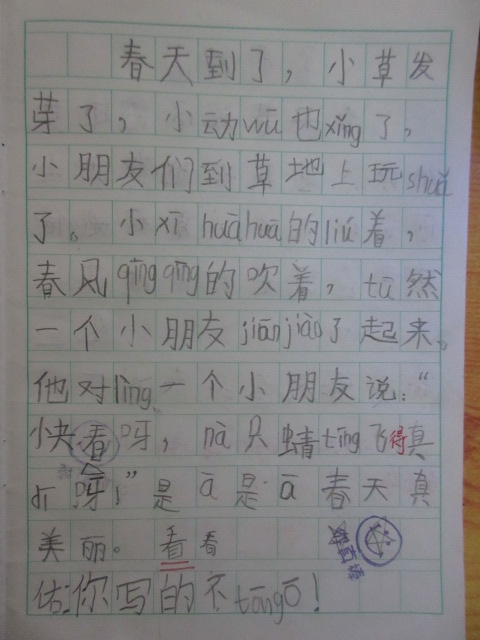 春天到了，小草发
芽了，小动wū也xǐng了，
小朋友们到草地上玩shuǎ
了。小xī huāhuā的liú着，
春风qīngqīng的吹着，tū然
一个小朋友jiānjiào了起来。
他对lìng一个小朋友说：“
快看呀，nà只蜻tíng飞得真
呀！”是ā是ā春天真
美丽。看看
你写的不